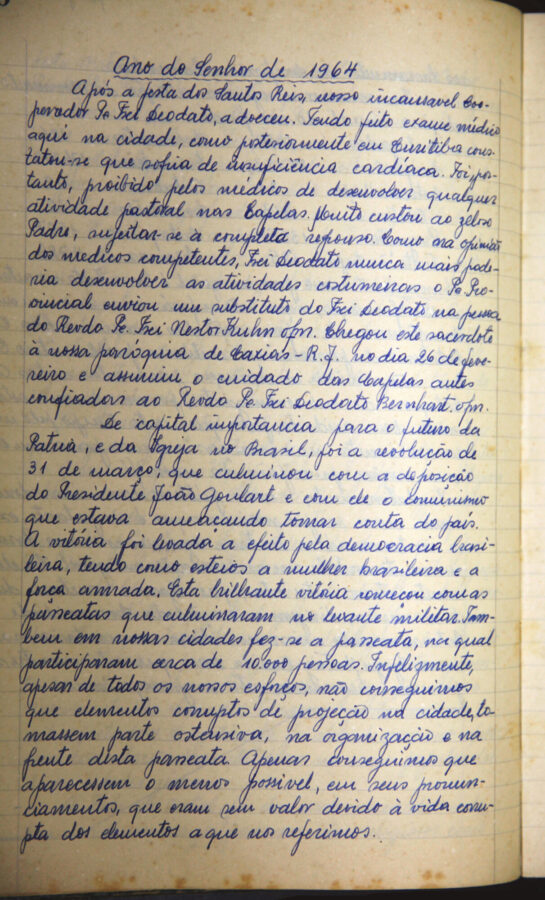 Ano do Senhor de 1964
Após a festa dos Santos Reis, nosso incansavel Coo-
perador Pe Frei Deodato, adoeceu. Tendo feito exame médico
aqui na cidade, como posteriormente em Curitiba cons-
tatou-se que sofria de insuficiência cardíaca. Foi, por-
tanto, proibido pelos médicos de desenvolver qualquer
atividade pastoral nas Capelas. Muito custou ao zeloso
Padre, sujeitar-se à completo repouso. Como na opinião
dos médicos competentes, Frei Deodato nunca mais pode-
ria desenvolver as atividades costumeiras o Pe Pro-
vincial enviou um substituto do Frei Deodato na pessoa
do Revdo Pe. Frei Nestor Kuhn ofm. Chegou este sacerdote
à nossa paróquia de Caxias - R.J. no dia 26 de feve-
reiro e assumiu o cuidado das Capelas antes
confiadas ao Revdo Pe Frei Deodato Bernhart. ofm.
De capital importancia para o futuro da
Patria, e da Igreja no Brasil, foi a revolução de
31 de março, que culminou com a deposição
do Presidente João Goulart e com ele o comunismo
que estava ameaçando tomar conta do país.
A vitória foi levada a efeito pela democracia brasi-
leira, tendo como esteios a mulher brasileira e a
força armada. Esta brilhante vitória começou com as
passeatas que culminaram no levante militar. Tam-
bem em nossas cidades fez-se a passeata, na qual
participaram cerca de 10.000 pessoas. Infelizmente,
apesar de todos os nossos esforços, não conseguimos
que elementos corruptos de projeção na cidade, to-
massem parte ostensiva, na organização e na
frente desta passeata. Apenas conseguimos que
aparecessem o menos possivel, em seus pronun-
ciamentos, que eram sem valor devido à vida corru-
pta dos elementos a que nos referimos.